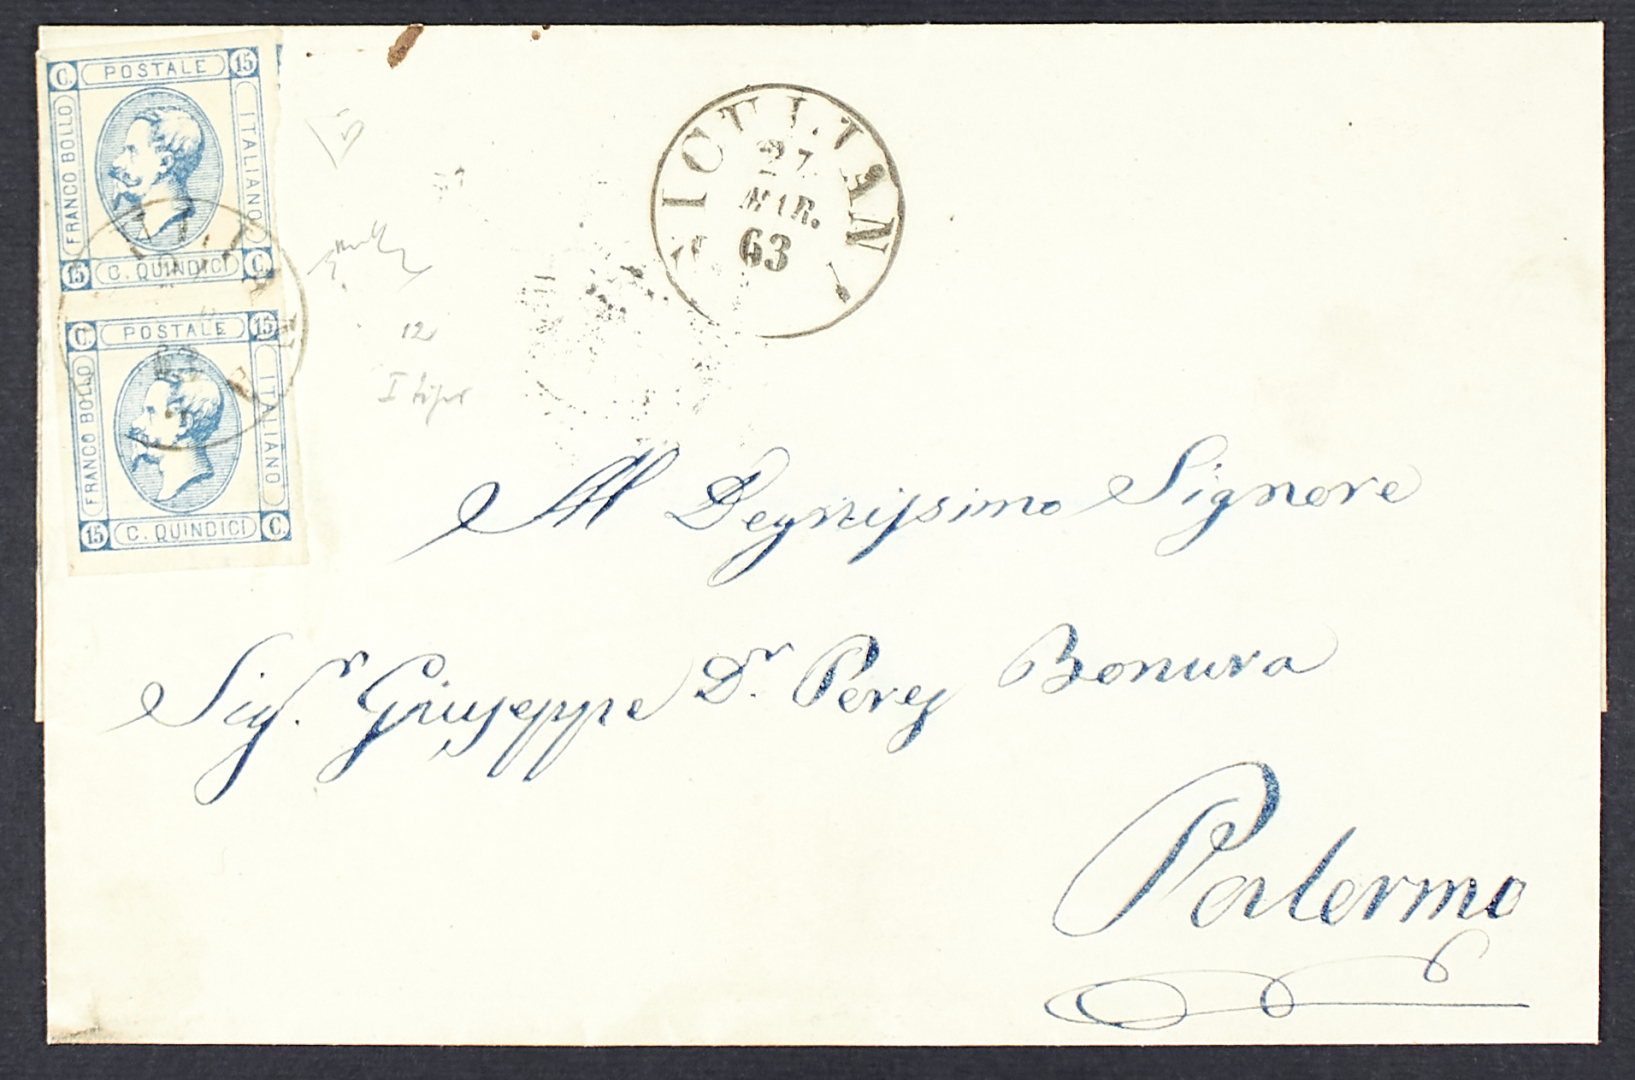 C. POSTALE 15
FRANCO BOLLO
ITALIANO
15 C. QUINDICI C.
C. POSTALE 15
FRANCO BOLLO
ITALIANO
15 C. QUINDICI C.
SICULIAN
27
MAR.
63
12
I tipo
Al Degnissimo Signore
Sigr. Giuseppe Dr. Perez Bonura
Palermo